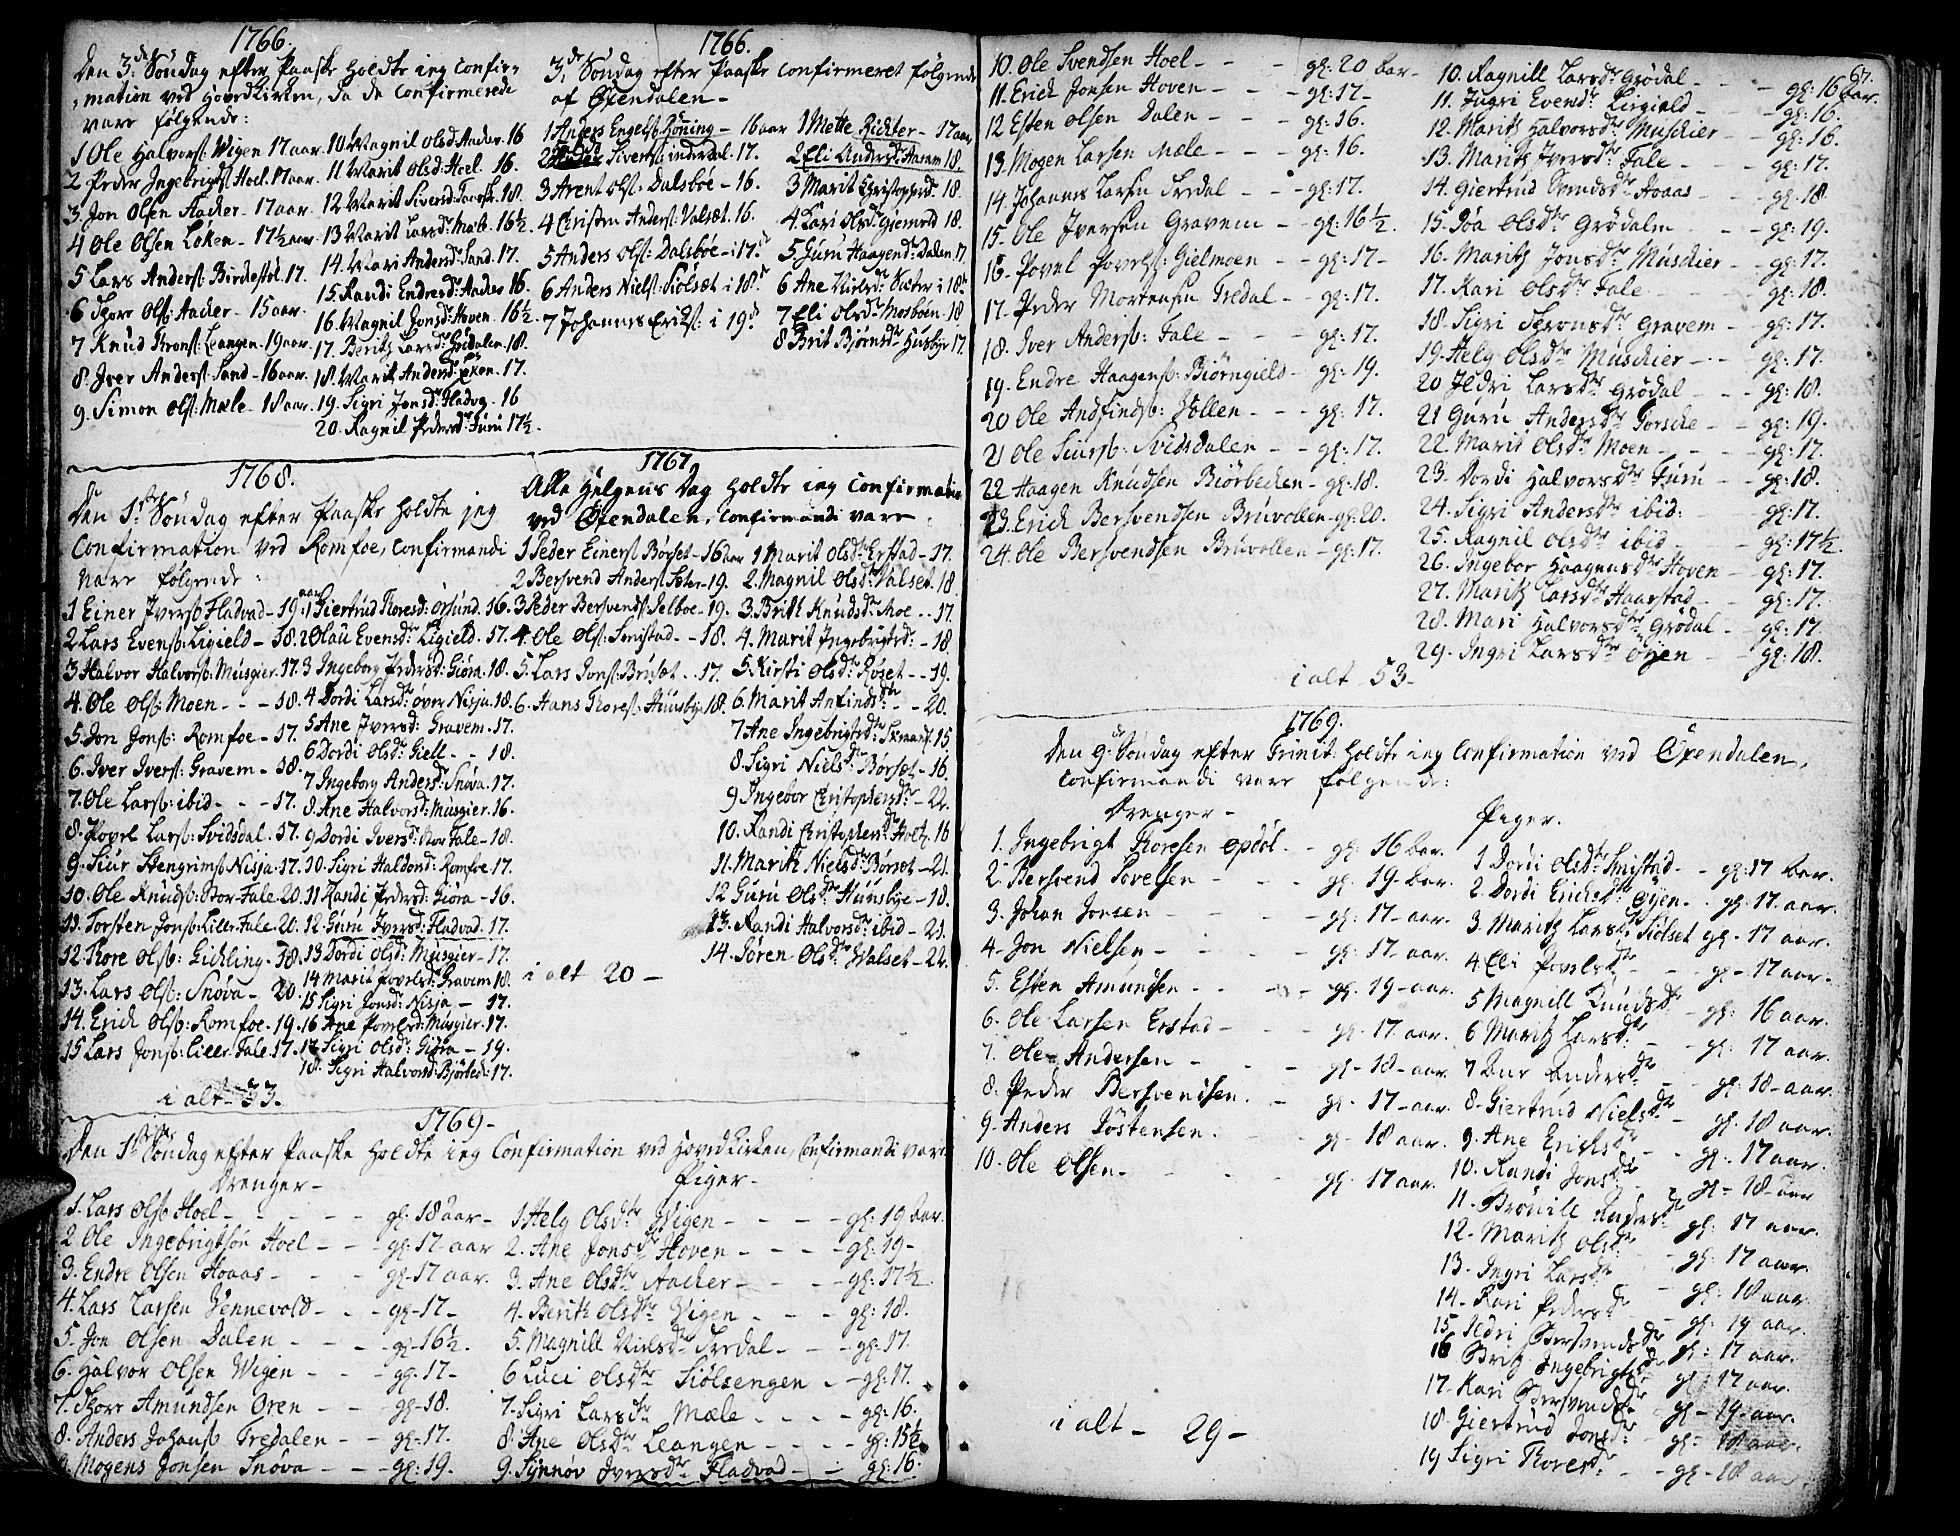 1766.
Den 3de Søndag efter Paaske holdte ieg Confir-
mation ved Hovedkirken, da de Confirmerede
vare følgende:
1 Ole Halvors: Wigen 17 aar.
2 Peder Ingebrigts: Hoel. 17 aar.
3. Jon Olsen Aacker - 17 aar.
4 Ole Olsen Løken - 17½ aar
5 Lars Anders: Birckestøl. 17.
6 Thore Ols: Aacker - 15 aar.
7 Knud Trons: Leangen. 19 aar.
8. Iver Anders: Sand - 16 aar.
9. Simon Ols: Mæle - 18 aar.
10. Magnil Olsd: Aacker. 16
11 Marit Olsd: Hoel. 16.
12 Marit Siversd: 18.
13 Marit Larsd: Mæle. 16½.
14. Mari Andersd: Sand. 17.
15. Randi Endresd: Aacker 16.
16. Magnil Jonsd: Hoven. 16½
17. Berith Larsd: Grødalen. 18.
18. Marit Andersd: Løken. 17.
19. Sigri Jonsd: Fladvg. 16
20. Ragnil Pedersd: Furu 17½.
1766.
3de Søndag efter Paaske Confirmeret følgende
af Øxendalen -
1 Anders Engels: Røning - 16 aar
2 Sivers: inderdal. 17.
3 Arent Ols: Dalsbøe - 16.
4 Christen Anders: Valsæt. 16.
5 Anders Ols: Dalsbøe - i 17.de
6 Anders Niels: Siolsæt i 18.de
7 Johannes Eriks: i 19.de
1 Mette Richter - 17 aar
2 Eli Andersd: Hamm 18.
3 Marit Christophersd: 18.
4. Kari Olsd: Giemvold 18.
5. Guru Haagensd: Dalen. 17.
6 Ane Nielsd: Sæter i 18.de
7 Eli Olsd: Mosboen. 18
8 Brit Bjørnsd: Husbye 17.
1768.
Den 1ste Søndag efter Paaske holdte jeg
Confirmation ved Romfoe, Confirmandi
vare følgende:
1 Einer Ivers: Fladvad - 19 aar
2 Lars Evens: Ligield - 18.
3 Halvor Halvors: Musgier. 17.
4. Ole Ols: Moen - - - 18.
5. Jon Jons: Romfoe - 17.
6. Iver Ivers: Gravem - 18.
7. Ole Lars: ibid - - - 17.
8. Povel Lars: Svidsdal. 17.
9. Siur Stengrims: Nisja. 17.
10. Ole Knuds: Stor Fale. 20.
11. Torsten Jons: Lille Fale. 20.
12. Thore Ols: Gickling. 18.
13. Lars Ols: Snøva - 20
14. Erich Ols: Romfoe. 19.
15 Lars Jons: Lille Fale. 17.
1 Giertrud Thoresd: Ørsund. 16.
2 Olau Evensd: Ligield. 17.
3 Ingeborg Pedersd: Giøra. 18.
4 Dordi Larsd: øvre Nisja. 18.
5 Ane Iversd: Gravem. 17.
6 Dordi Olsd: Giell - - 18.
7 Ingeborg Andersd: Snøva. 17.
8 Ane Halvorsd: Musgier. 16.
9 Dordi Iversd: Stor Fale - 18.
10. Sigri Haldorsd: Romfoe. 17.
11 Randi Pedersd: Giöra - 16.
12 Guru Iversd: Fladvad. 17.
13 Dordi Olsd: Musgier - 17.
14 Marit Povelsd: Gravem 18.
15 Sigri Jonsd: Nisja - 17.
16 Ane Povelsd: Musgier. 17.
17 Sigri Olsd: Giøra - 19.
18. Sigri Halvorsd: Bjørbeck: 17.
i alt - 33.
1767
Alle Helgens Dag holdte ieg Confirmation
ved Øxendalen, Confirmandi vare
1 Peder Einers: Børset - 16 aar
2 Bersvend Anders: Sæter - 19.
3 Peder Bersvends: Jelboe - 19.
4. Ole Ols: Smistad - - 18.
5. Lars Jons: Brusæt - . 17.
6. Hans Thores: Huusbye 18.
1 Marit Olsd: Erstad - 17.
2. Magnil Olsd: Valset. 18
3. Brith Knudsd: Moe - - 17.
4. Marit Ingebrigtsd: - 18.
5. Kirsti Olsd: Røset - - 19.
6. Marit Anfindsd: - - 20.
7 Ane Ingebrigtsd: 15
8. Sigri Nielsd: Børset - 16.
9 Ingebor Christophersd: - 22.
10. Randi Christophersd: Holt. 16
11. Marith Nielsd: Børset - 21.
12 Guru Olsd: Huusbye - 18.
13. Randi Halvorsd: ibid - 21.
14. Søren Olsd: Walset - 22.
i alt 20 -
1769 -
Den 1ste Søndag efter Paaske holdte ieg Confirmation ved Hovedkirken, Confirmandi vare
Drenger -
1. Lars Ols: Hoel - - - gl: 18 aar -
2 Ole Ingebrigtsøn Hoel - - gl: 17 - aar
3. Endre Olsen Hoaas - - gl - 17 aar.
4. Lars Larsen Vennevold - - gl - 17 -
5. Jon Olsen Dalen - - gl - 16½.
6. Halvor Olsen Wigen - - gl. 17 -
7. Thore Amundsen Øren - - gl - 18.
8. Anders Johans: Tredalen - - gl - 17.
9. Mogens Jonsen Snøva - - gl: 19.
Piger -
1 Helg Olsdtr Wigen - - - gl: 19 aar.
2. Ane Jonsdtr Hoven - - - gl: 19 -
3. Ane Olsdtr Aacker - - - gl: 17½
4. Berith Olsdtr Wigen - - gl: 18.
5. Magnill Nielsdtr Tredal - - gl: 17.
6 Luci Olsdtr Siölsengen - - gl: 17.
7. Sigri Larsdtr Mæle - - - gl: 16.
8. Ane Olsdtr Leangen - - - gl: 15½
9. Synnøv Iversdtr Fladvad - - gl: 16.
67.
10. Ole Svendsen Hoel - - - gl: 20 aar -
11. Erich Jonsen Hoven - - - gl: 17 -
12 Esten Olsen Dalen - - - gl: 16.
13. Mogen Larsen Mæle - - - gl: 16.
14. Johannes Larsen Tredal - - gl: 17.
15. Ole Iversen Gravem - - gl: 16½.
16. Povel Povels: Gielmoen - - gl: 17 -
17. Peder Mortensen Tredal - gl: 17.
18. Iver Anders: Fale - - - gl: 17.
19. Endre Haagens: Biørngield - gl: 19.
20 Ole Andfinds: Vollen - - - gl: 17.
21 Ole Siurs: Svidsdalen - - gl: 17.
22 Haagen Knudsen Biörbecken - gl: 18.
23. Erich Bersvendsen Bruvollen - gl: 20.
24. Ole Bersvendsen Bruvollen - gl: 17.
10. Ragnill Larsdtr Grödal - - gl: 16 aar.
11. Ingri Evensdtr Ligield - - gl: 16.
12. Marith Halvorsdtr Muschier - gl: 16.
13. Marith Iversdtr Fale - - gl: 17.
14. Giertrud Svendsdtr Hoaas - gl: 18.
15. Göa Olsdtr Grödalen - - gl: 19.
16. Marith Jonsdtr Muschier - gl: 17.
17. Kari Olsdtr Fale - - gl: 18.
18. Sigri Tronsdtr Gravem - gl: 17.
19. Helg Olsdtr Muschier - - gl: 17.
20 Ildri Larsdtr Grødal - - gl: 18.
21 Guru Andersdtr Gorsche - gl: 19.
22. Marit Olsdtr Moen - - gl: 17.
23. Dordi Halvorsdtr Furu - gl: 18.
24. Sigri Andersdtr ibid: - gl: 17.
25. Ragnil Olsdtr ibid - - gl: 17½.
26. Ingebor Haagensdtr Hoven - gl: 17.
27. Marith Larsdtr Haarstad - gl: 17.
28. Mari Halvorsdtr Grödal - gl: 17.
29. Ingri Larsdtr Öyen - - gl: 18.
i alt - 53 -
1769.
Den 9de Søndag efter Trinit. holdte ieg Confirmation ved Øxendalen,
Confirmandi vare følgende:
Drenger -
1. Ingebrigt Thoresen Opdöl - - gl: 16 aar.
2 Bersvend Povelsen - - - gl: 19 - aar.
3. Johan Jonsen - - - gl: 17 - aar.
4 - Jon Nielsen - - - gl: 17 aar.
5. Esten Amundsen - - - gl: 19 - aar.
6. Ole Larsen Erstad - - - gl: 17 aar.
7. Ole Andersen - - - gl - 18 - aar.
8. Peder Bersvendsen. - gl - 17 - aar.
9. Anders Jöstensen. - - gl - 18 aar.
10. Ole Olsen - - - gl: 17 aar.
Piger.
1 Dordi Olsdtr Smistad - - gl: 17 aar.
2 Dordi Erichsdtr Öyen. - gl: 17 aar.
3. Marith Larsdtr Siölset gl - 17 aar.
4 Eli Povelsdtr - - gl - 17 aar.
5 Magnill Knudsdtr - gl: 16 aar.
6 Marith Larsdtr - - gl: 17 aar.
7 Andersdtr - - gl: 18 - aar.
8 - Giertrud Nielsdtr - gl: 18 aar.
9. Ane Erichsdtr - - gl: 17 aar.
10. Randi Jonsdtr - gl - 18 - aar
11. Andersdtr gl: 17 aar.
12. Marith Olsdtr - gl: 17 aar.
13. Ingri Larsdtr - gl: 18 aar.
14. Kari Pedersdtr gl: 19 aar.
15. Ildri Bersvendsdtr gl: 17 aar.
16 Brit Ingebrigtsdtr gl: 17 aar.
17. Kari Bersvendsdtr gl - 19 - aar.
18. Giertrud Jonsdtr gl - 18 aar.
19 Sigri Thoresdtr - gl - 18 aar.
i alt - 29 -